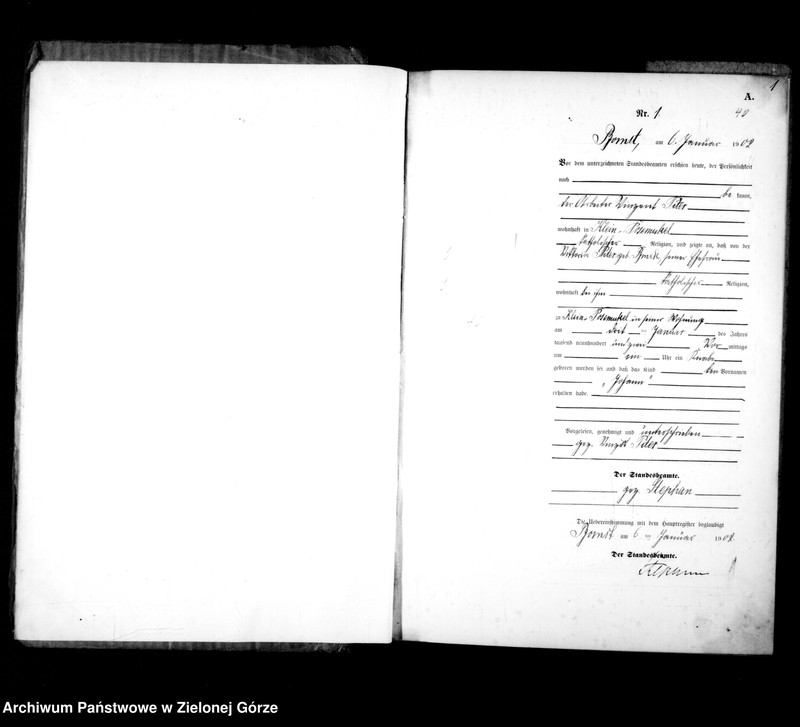 1
A.
Nr. 1.
40
Bomst, am 6. Januar 1902
Vor dem unterzeichneten Standesbeamten erschien heute, der Persönlichkeit
nach
be kannt,
der Arbeiter Vinzent
wohnhaft in Klein-Posemukel
katholischer Religion, und zeigte an, daß von der
geb. seiner Ehefrau
katholischer Religion,
wohnhaft bei ihm
zu Klein-Posemukel in seiner Wohnung
am Januar des Jahres
tausend neunhundert und zwei Vor mittags
um Uhr ein Knabe
geboren worden sei und daß das Kind den Vornamen
"Johann"
erhalten habe.
Vorgelesen, genehmigt und unterschrieben
gez.
Der Standesbeamte.
gez. Stephan
Die Uebereinstimmung mit dem Hauptregister beglaubigt
Bomst am 6 ten Januar 1902.
Der Standesbeamte.
Stephan
Archiwum Państwowe w Zielonej Górze